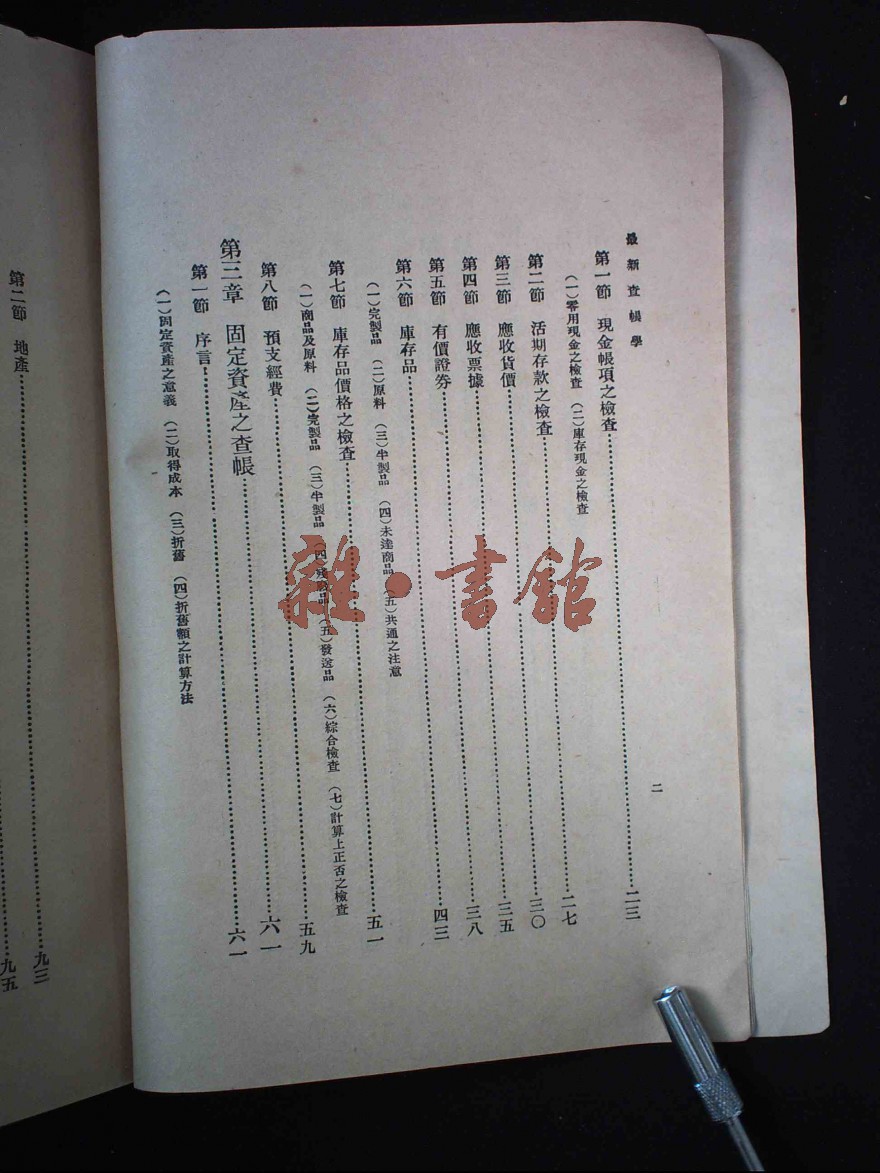 最新查帳學
二
第一節 現金帳項之檢查……二三
(一)零用現金之檢查 (二)庫存現金之檢查
第二節 活期存款之檢查……二七
第三節 應收貨價……三〇
第四節 應收票據……三五
第五節 有價證券……三八
第六節 庫存品……四三
(一)完製品 (二)原料 (三)半製品 (四)未達商品 (五)共通之注意
第七節 庫存品價格之檢查……五一
(一)商品及原料 (二)完製品 (三)半製品 (四)殘廢品 (五)發送品 (六)綜合檢查 (七)計算上正否之檢查
第八節 預支經費……五九
第三章 固定資產之查帳……六一
第一節 序言……六一
(一)固定資產之意義 (二)取得成本 (三)折舊 (四)折舊額之計算方法
第二節 地產……九三
……九五
雜·書館